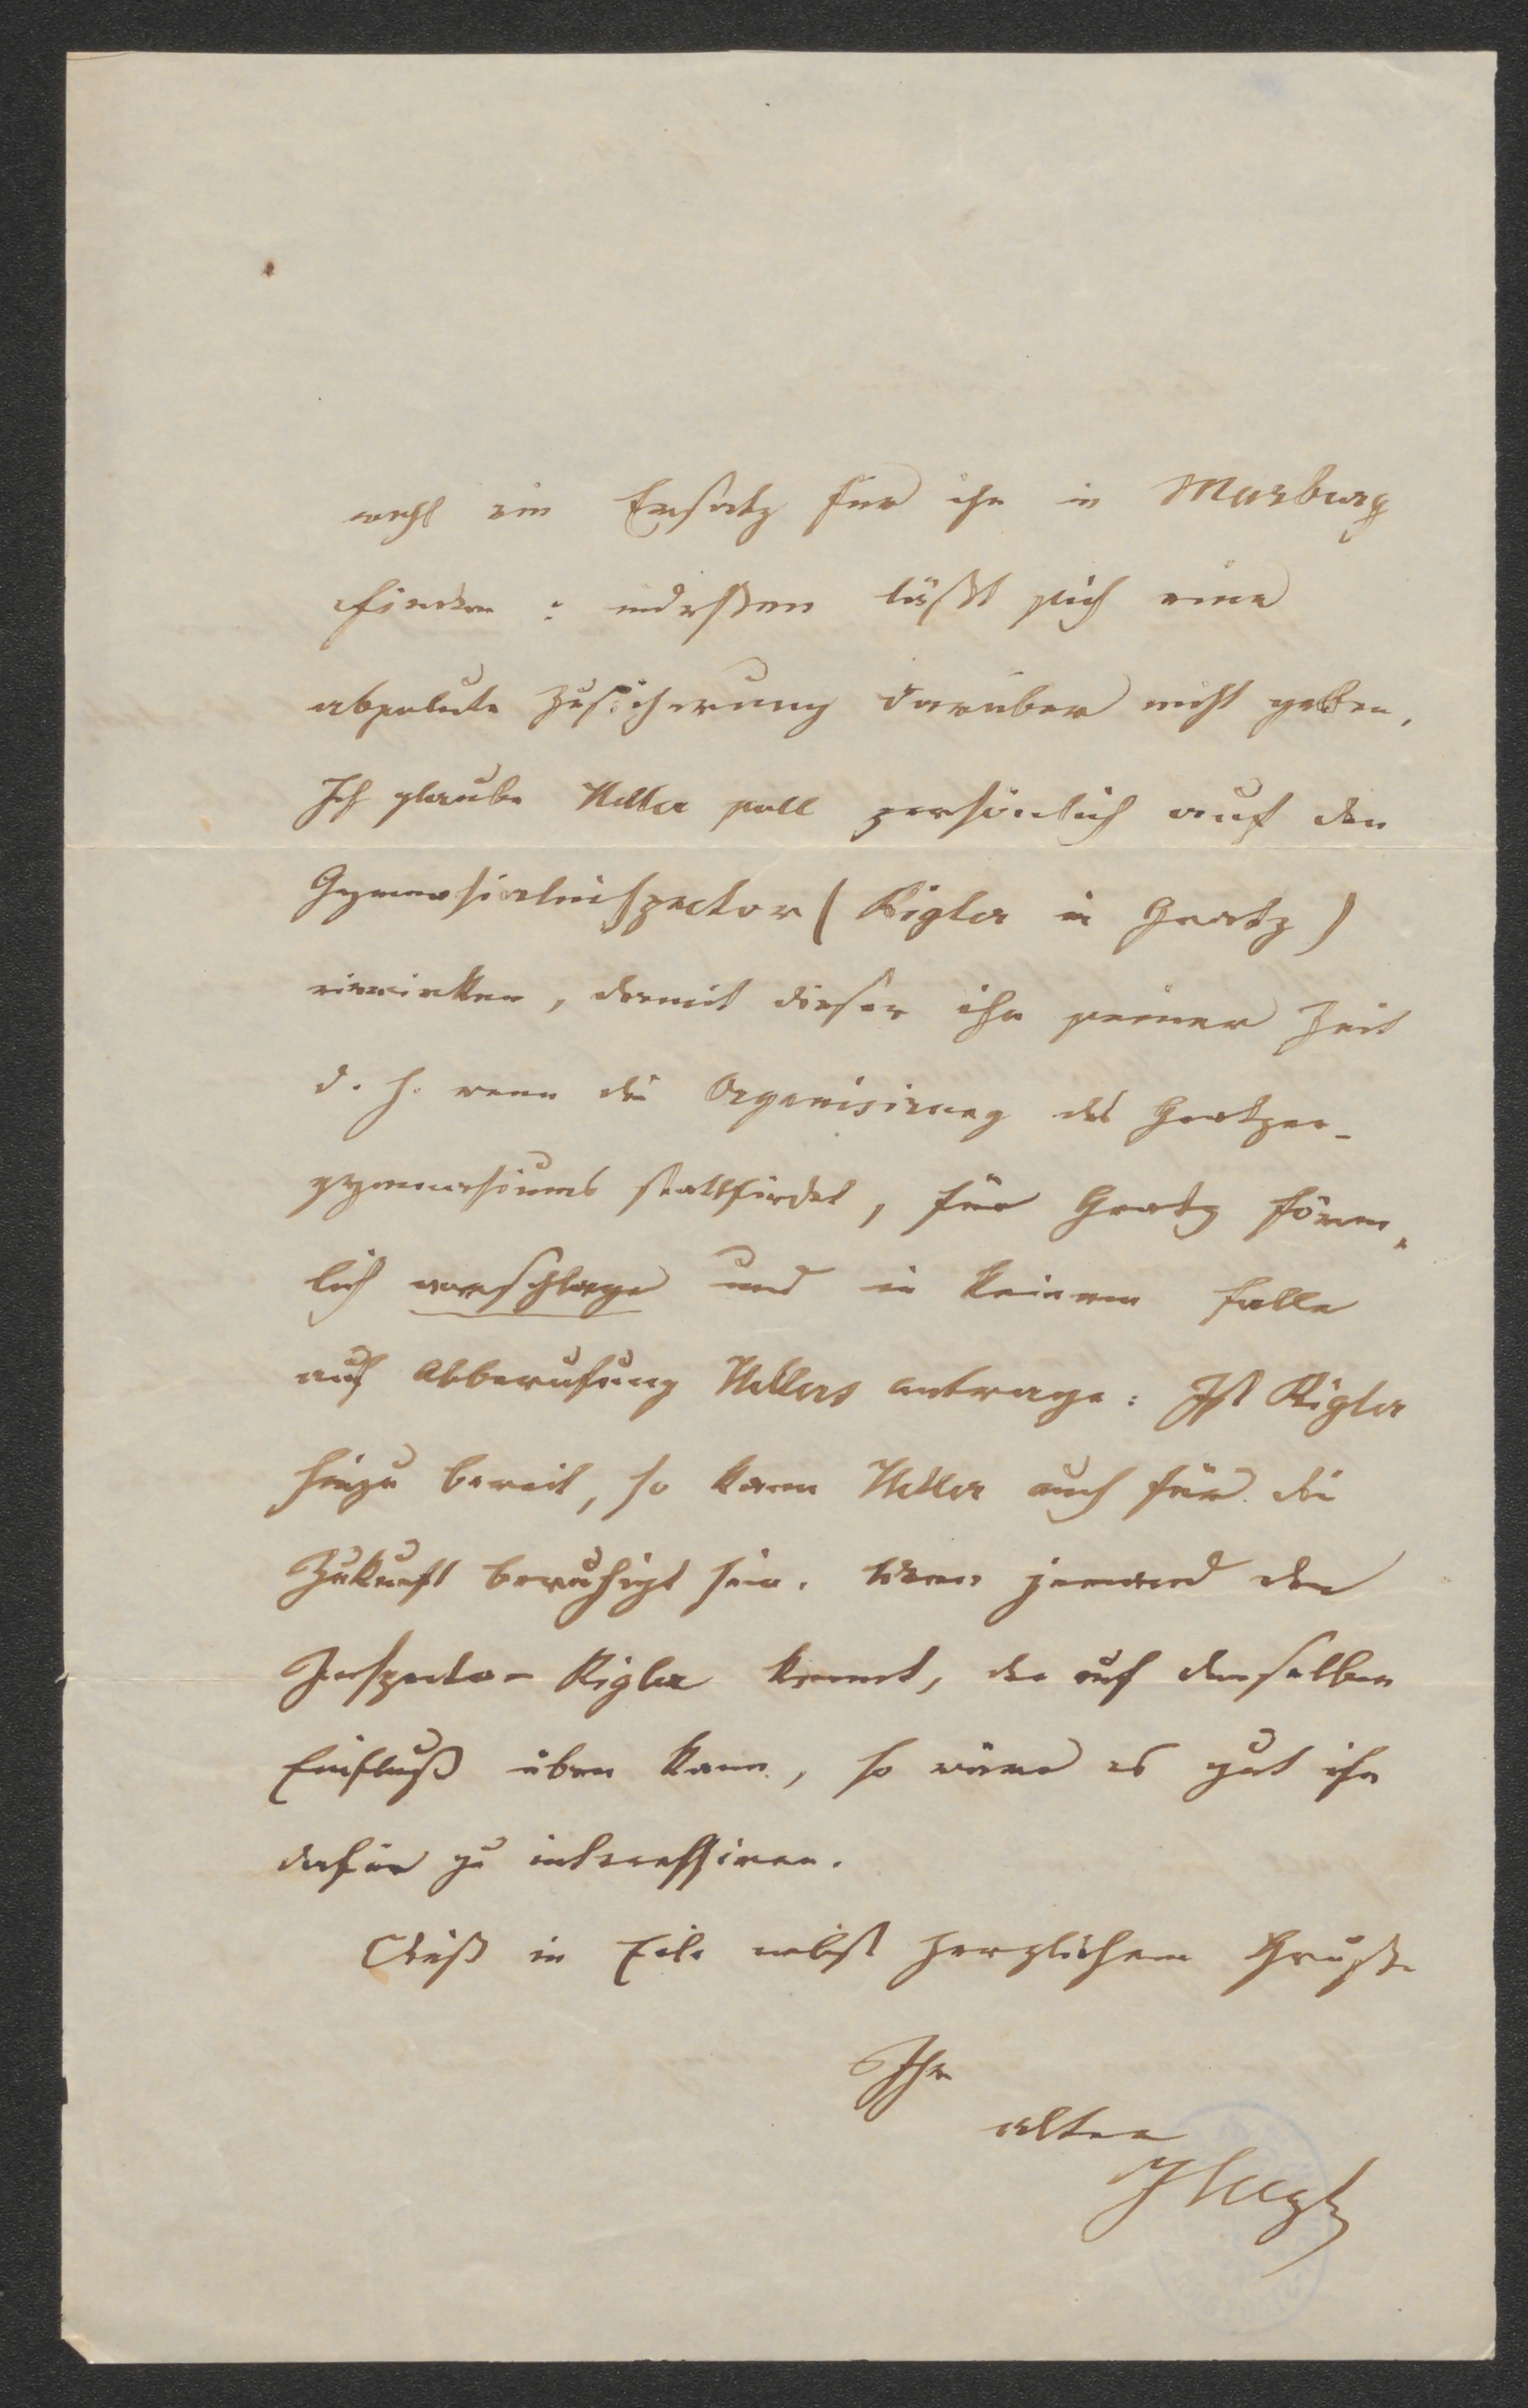 wohl ein Ersatz für ihn in Marburg
finden: indessen läßt sich eine
absolute Zusicherung darüber nicht geben.
Ich glaube Heller soll persönlich auf den
Gymnasialinspector (Rigler in Gratz)
einwirken, damit dieser ihn seiner Zeit
d. h. wenn die Organisirung des Gratzer-
gymnasiums stattfindet, für Gratz förm-
lich vorschlage und in keinem Falle
auf Abberufung Hellers antrage: Ist Rigler
hiezu bereit, so kann Heller auch für die
Zukunft beruhigt sein. Wenn jemand den
Inspector Rigler kennt, der auf denselben
Einfluß üben kann, so wäre es gut ihn
dafür zu interessiren.
Dieß in Eile nebst herzlichem Gruße
Ihr
alter